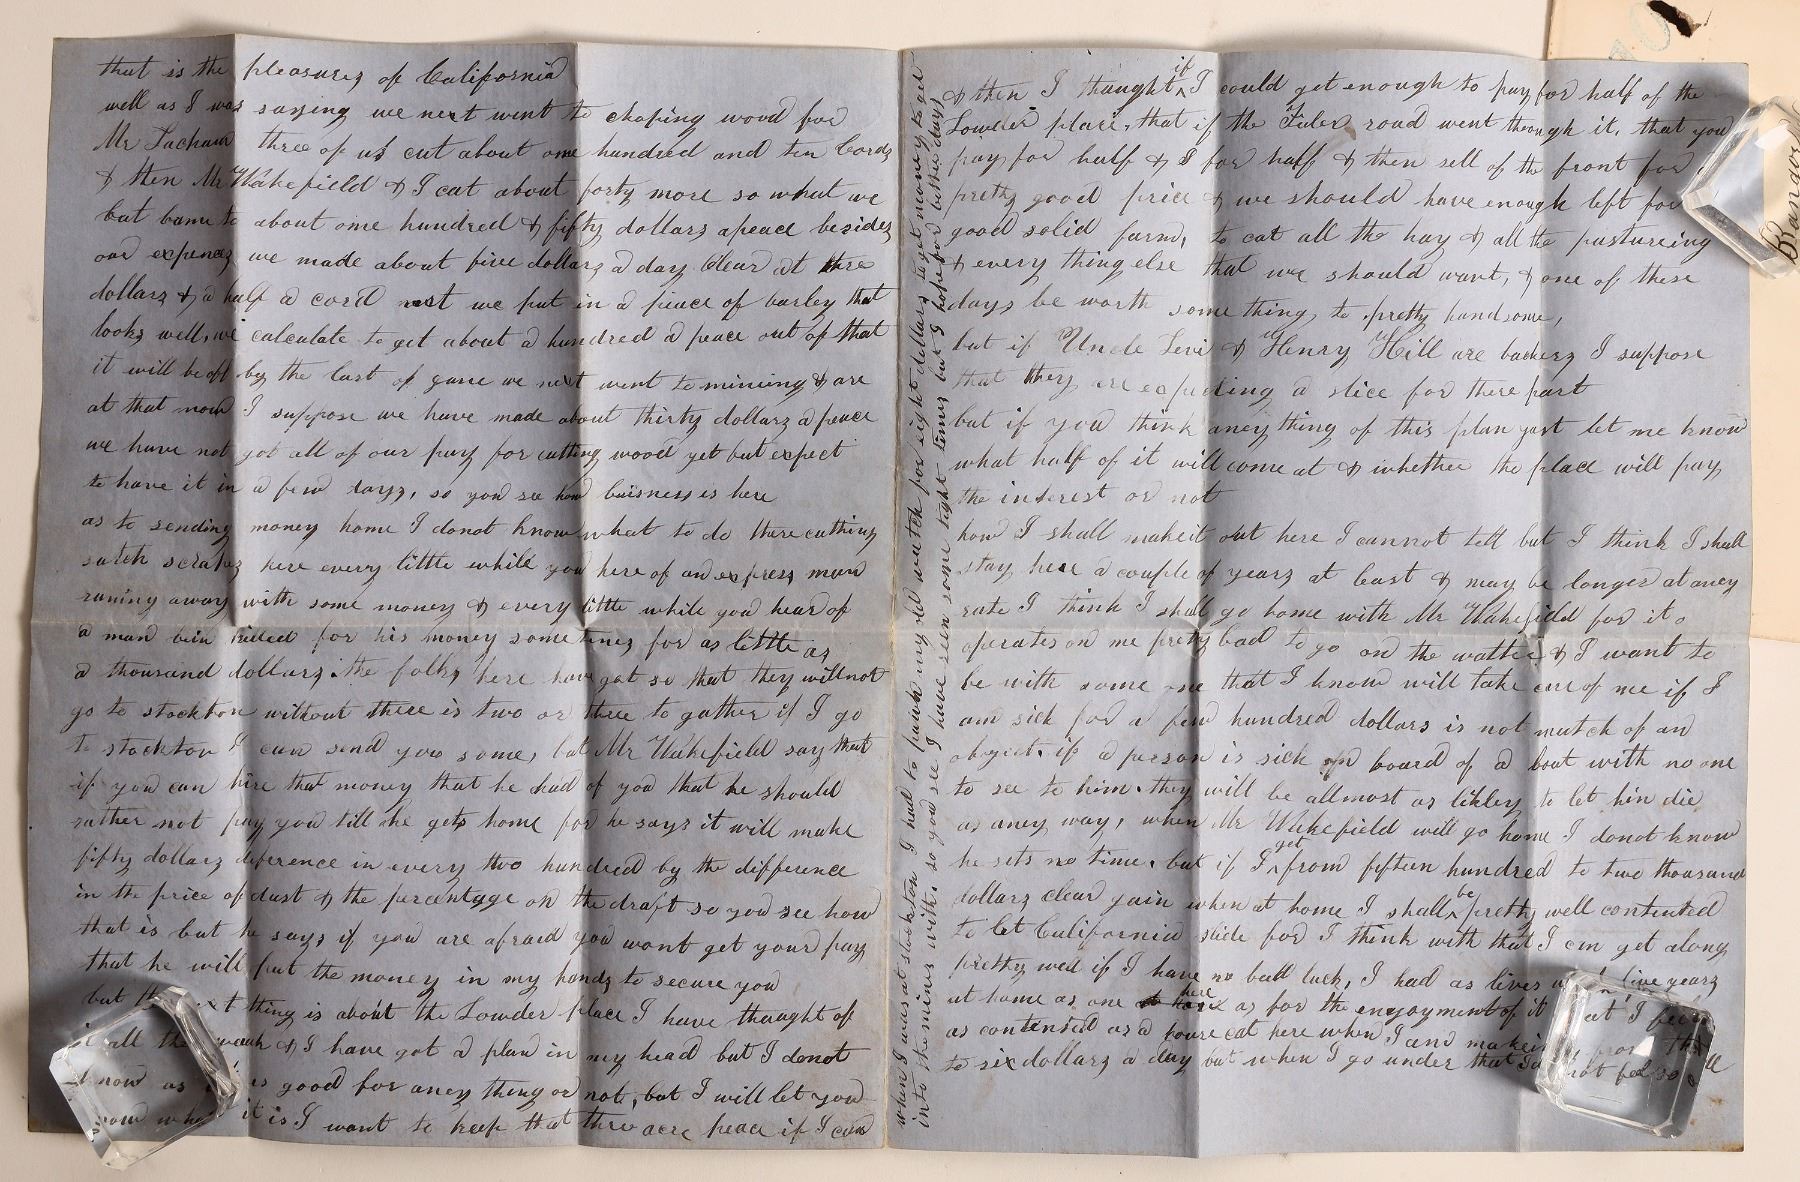 that is the pleasures of California
well as I was saying we next went to choping wood for
Mr three of us cut about one hundred and ten Cords
& then Mr Wakefield & I cut about forty more so what we
but bame to about one hundred & fifty dollars apeace besides
our expences we made about five dollars a day Clear at three
dollars & a half a cord next we put in a peace of barley that
looks well, we calculate to get about a hundred a peace out of that
it will be off by the last of june we next went to mineing & are
at that now I suppose we have made about thirty dollars a peace
we have not got all of our pay for cutting wood yet but expect
to have it in a few days, so you see how buisness is here
as to sending money home I donot know what to do there cutting
sutch scrapes here every little while you here of an express man
runing away with some money & every little while you hear of
a man bein killed for his money some times for as little as
a thousand dollars. the folks here have got so that they will not
go to stockton without there is two or three to gather if I go
to stockton I can send you some, but Mr Wakefield say that
if you can hire that money that he had of you that he should
rather not pay you till he gets home for he says it will make
fifty dollars deference in every two hundred by the difference
in the price of dust & the percentage on the draft so you see how
that is but he says if you are afraid you wont get your pay
that he will put the money in my hands to secure you
but the next thing is about the Lowder place I have thought of
it all the & I have got a plan in my head but I donot
know as it is good for aney thing or not, but I will let you
know what it is I want to keep that three acre peace if I can
when I was at stockton I had to pawn my old watch for eight dollars to get money to get
into the mines with, so you see I have seen some tight times but I hope for better days
& then I thought if I could get enough to pay for half of the
Lowder place, that if the road went through it, that you
pay for half & I for half & then sell of the front for
pretty good price & we should have enough left for
good solid farm, to cut all the hay & all the pastureing
& every thing else that we should want, & one of these
days be worth some thing to pretty handsome,
but if Uncle Levi & Henry Hill are backers I suppose
that they are expecting a slice for there part
but if you think aney thing of this plan just let me know
what half of it will come at & whether the place will pay
the interest or not
how I shall make it out here I cannot tell but I think I shall
stay here a couple of years at least & may be longer at aney
rate I think I shall go home with Mr Wakefield for it
operates on me pretty bad to go on the watter & I want to
be with some one that I know will take care of me if I
am sick for a few hundred dollars is not mutch of an
object. if a person is sick on board of a boat with no one
to see to him. they will be allmost as likley to let him die
as aney way, when Mr Wakefield will go home I donot know
he sets no time. but if I get from fifteen hundred to two thousand
dollars clear gain when at home I shall be pretty well contented
to let California slide for I think with that I can get along
pretty well if I have no bad luck, I had as lives five years
at home as one here as for the enjoyment of it but I feel
as contented as a house cat here when I am making from three
to six dollars a day but when I go under that I do not feel so well